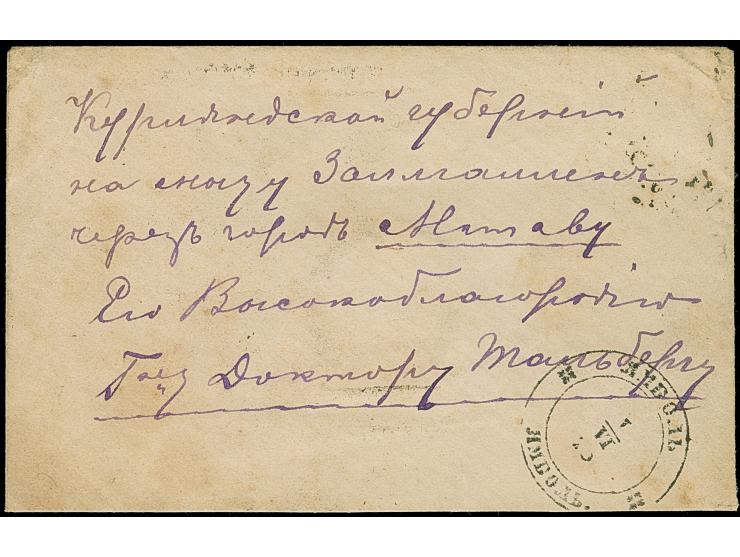 Курляндской губернiи
на мызу Залмаиленъ
черезъ городъ Митаву
Его Высокоблагородiю
Гну Доктору Тальбергу
ЯМБОЛЬ
ЯМБОЛЬ.
VI